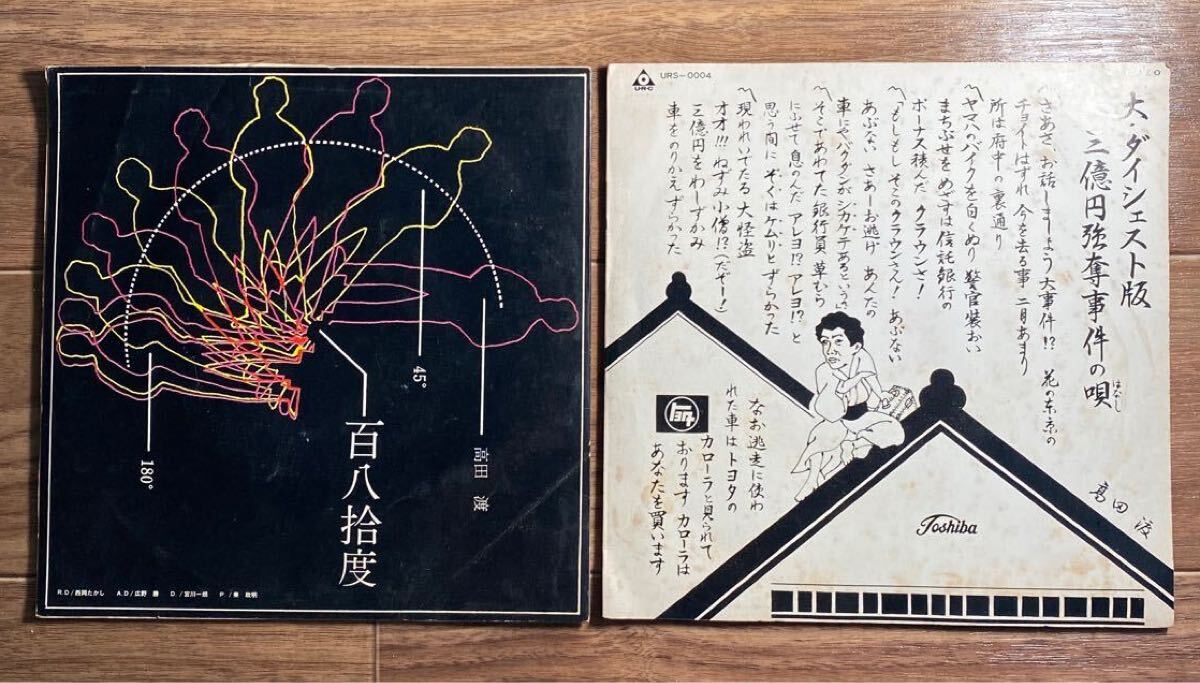 高田 渡
45°
百八拾度
180°
R.D/西岡たかし A.D/広野 勝 D./宮川一郎 P/秦 政明
URC
URS-0004
大ダイジェスト版
三億円強奪事件の唄
はなし
高田 渡
〽さあさ、お話ししましょう大事件!? 花の東京の
チョイトはずれ 今を去る事 二月あまり
所は府中の裏通り
〽ヤマハのバイクを白くぬり 警官装おい
まちぶせをめざすは信託銀行の
ボーナス積んだクラウンさ!
〽「もしもしそこのクラウンさん! あぶない
あぶない さあーお逃げ あんたの
車にゃバクダンがシカケテあるといって」
〽そこであわてた銀行員 草むら
にふせて息のんだ アレヨ!? アレヨ!? と
思う間に ぞくはケムリとずらかった
〽現われいでたる大怪盗
オオ!!! ねずみ小僧!? (だぞー!)
三億円をわしずかみ
車をのりかえずらかった
なお逃走に使わ
れた車はトヨタの
カローラと見られて
おります カローラは
あなたを買います
トヨタ
Toshiba